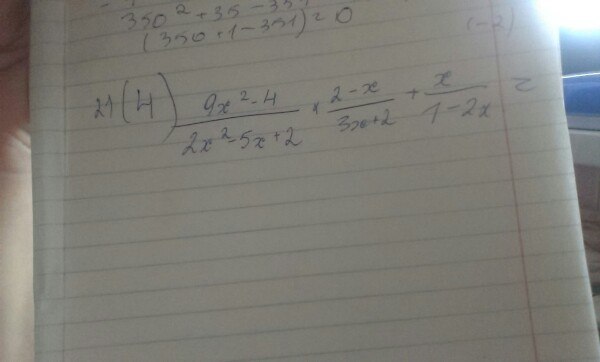 350² + 35 - 351
(350 + 1 - 351) = 0
(-2)
21 (4) \frac{9x² - 4}{2x² - 5x + 2} × \frac{2 - x}{3x + 2} + \frac{x}{1 - 2x} =